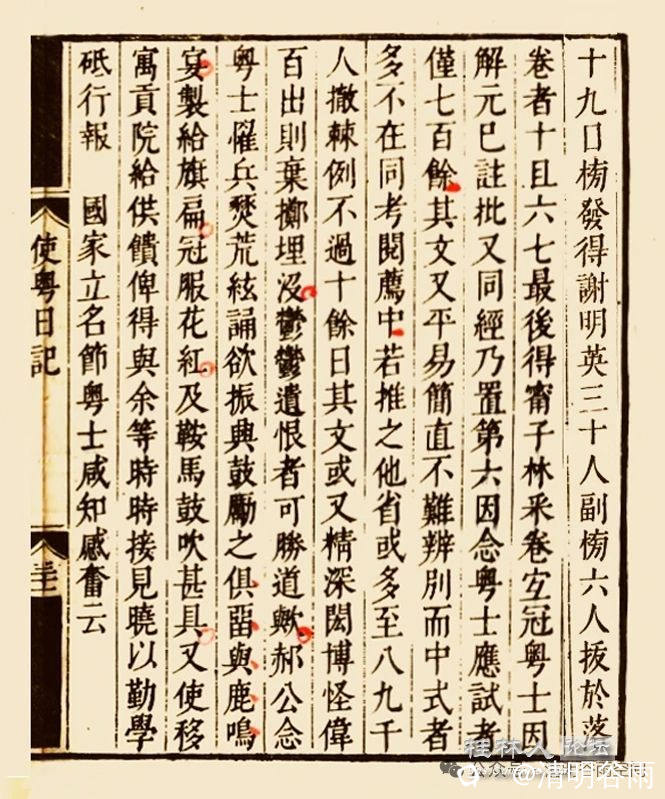 十九日榜發得謝明英三十人副榜六人拔於落
卷者十且六七最後得甯子林釆卷宜冠粤士因
解元已註批又同經乃置第六因念粤士應試者
僅七百餘其文又平易簡直不難辨别而中式者
多不在同考閱薦中若推之他省或多至八九千
人撤棘例不過十餘日其文或又精深閎博怪偉
百出則棄擲埋没鬱鬱遺恨者可勝道歟郝公念
粤士罹兵燹荒絃誦欲振興鼓勵之俱留與鹿鳴
宴製給旗扁冠服花紅及鞍馬鼓吹甚具又使移
寓貢院給供饋俾得與余等時時接見曉以勤學
砥行報 國家立名節粤士咸知感奮云
使粤日記
桂林人论坛
公众号
@清明谷雨